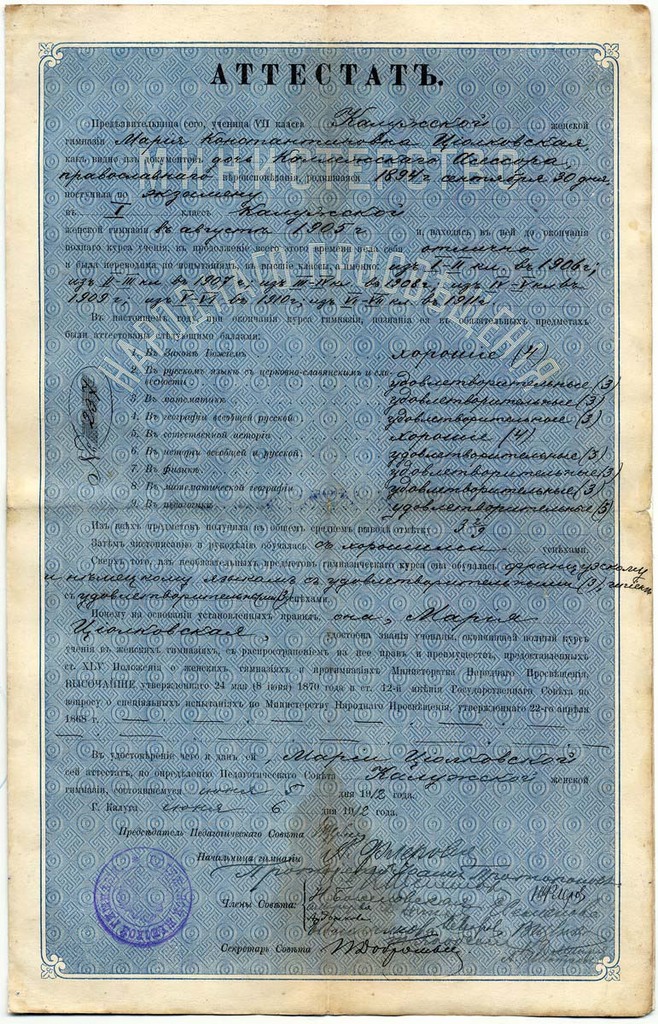 АТТЕСТАТЪ.
МИНИСТЕРСТВО
НАРОДНАГО ПРОСВѢЩЕНІЯ
Предъявительница сего, ученица VII класса Калужской женской
гимназіи Марія Константиновна Ціолковская
какъ видно изъ документовъ дочь Коллежскаго Асессора,
православнаго вѣроисповѣданія, родившаяся 1894 г. сентября 30 дня,
поступила по экзамену
въ I классъ Калужской
женской гимназіи въ августѣ 1905 г и, находясь въ ней до окончанія
полнаго курса ученія, въ продолженіе всего этого времени вела себя отлично
и была переводима по испытаніямъ въ высшіе классы, а именно: изъ I-II кл. въ 1906 г;
изъ II-III кл въ 1907 г; изъ III-IV кл въ 1908 г; изъ IV-V кл въ
1909 г; изъ V-VI въ 1910 г; изъ VI-VII кл въ 1911 г.
Въ настоящемъ году, при окончаніи курса гимназіи, познанія ея въ обязательныхъ предметахъ
были аттестованы слѣдующими баллами:
1. Въ Законѣ Божіемъ хорошіе (4)
2. Въ русскомъ языкѣ съ церковно-славянскимъ и словесности удовлетворительные (3)
3. Въ математикѣ удовлетворительные (3)
4. Въ географіи всеобщей и русской удовлетворительное (3)
5. Въ естественной исторіи хорошіе (4)
6. Въ исторіи всеобщей и русской удовлетворительные (3)
7. Въ физикѣ удовлетворительные (3)
8. Въ математической географіи удовлетворительные (3)
9. Въ педагогикѣ удовлетворительные (3)
Изъ всѣхъ предметовъ получила въ общемъ среднемъ выводѣ отмѣтку 3 2/9
Затѣмъ чистописанію и рукодѣлію обучалась съ хорошими успѣхами.
Сверхъ того, изъ необязательныхъ предметовъ гимназическаго курса она обучалась французскому
и нѣмецкому языкамъ съ удовлетворительными (3), гигіенѣ
съ удовлетворительными (3) успѣхами.
Почему на основаніи установленныхъ правилъ, она, Марія
Ціолковская, удостоена званія ученицы, окончившей полный курсъ
ученія въ женскихъ гимназіяхъ, съ распространеніемъ на нее правъ и преимуществъ, предоставленныхъ
ст. XLV Положенія о женскихъ гимназіяхъ и прогимназіяхъ Министерства Народнаго Просвѣщенія,
ВЫСОЧАЙШЕ утвержденнаго 24 мая (8 іюня) 1870 года и ст. 12-й мнѣнія Государственнаго Совѣта по
вопросу о спеціальныхъ испытаніяхъ по Министерству Народнаго Просвѣщенія, утвержденнаго 22-го апрѣля
1868 г.
Въ удостовѣреніе чего и данъ ей, Маріи Ціолковской
сей аттестатъ, по опредѣленію Педагогическаго Совѣта Калужской женской
гимназіи, состоявшемуся іюня 5 дня 1912 года.
Г. Калуга іюня 6 дня 1912 года.
Предсѣдатель Педагогическаго Совѣта
Начальница гимназіи
Протоіерей
Члены Совѣта:
Секретарь Совѣта